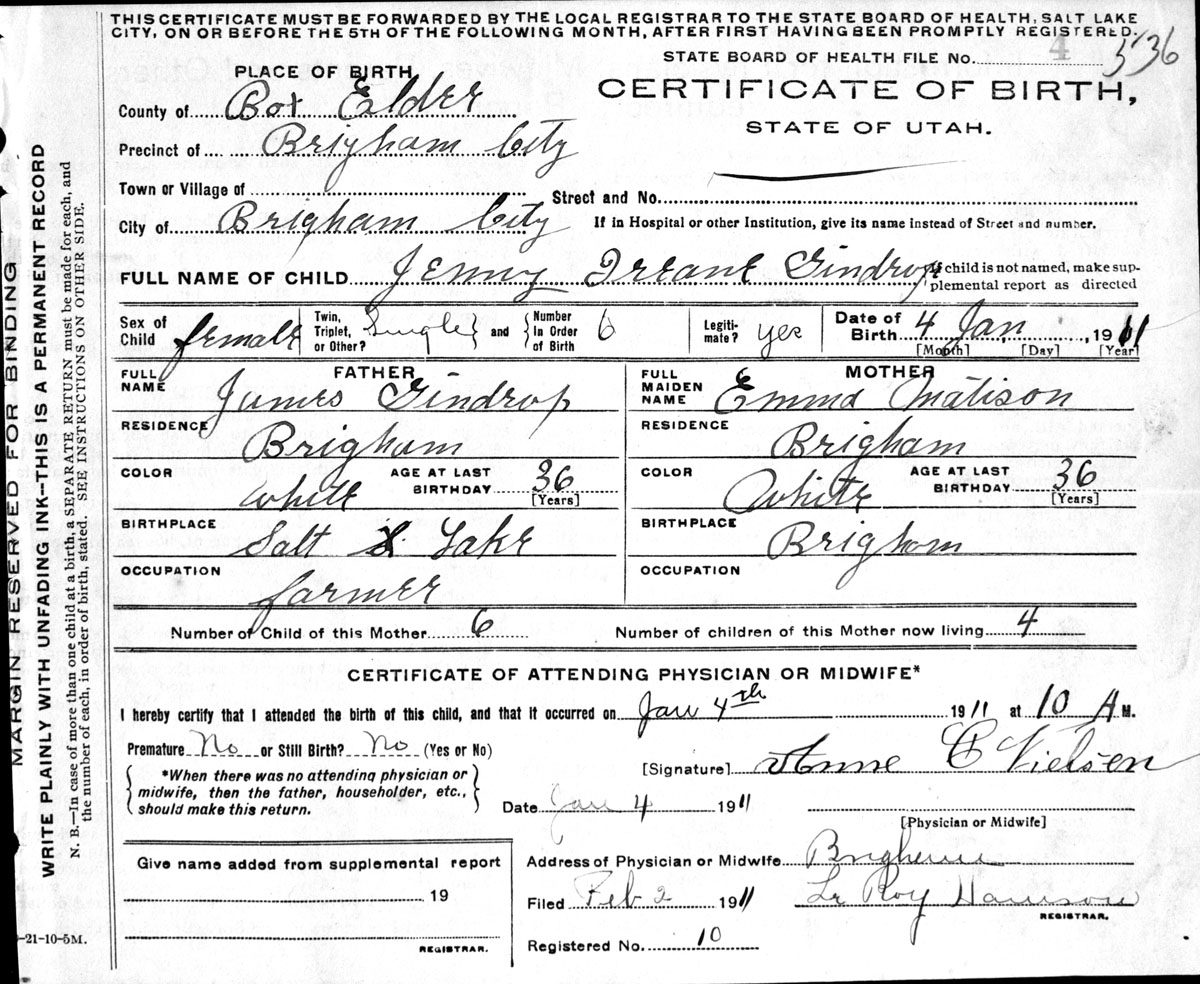 THIS CERTIFICATE MUST BE FORWARDED BY THE LOCAL REGISTRAR TO THE STATE BOARD OF HEALTH, SALT LAKE
CITY, ON OR BEFORE THE 5TH OF THE FOLLOWING MONTH, AFTER FIRST HAVING BEEN PROMPTLY REGISTERED.
STATE BOARD OF HEALTH FILE No. 4 536
PLACE OF BIRTH
CERTIFICATE OF BIRTH,
STATE OF UTAH.
County of Box Elder
Precinct of Brigham City
Town or Village of
Street and No.
City of Brigham City
If in Hospital or other Institution, give its name instead of Street and number.
FULL NAME OF CHILD Jenny Irean Gindrop
If child is not named, make sup-
plemental report as directed
Sex of Child female
Twin, Triplet, or Other? Single and Number In Order of Birth 6
Legiti-mate? yes
Date of Birth 4 Jan, 1911
[Month] [Day] [Year]
FATHER
FULL NAME James Gindrop
RESIDENCE Brigham
COLOR White AGE AT LAST BIRTHDAY 36 [Years]
BIRTHPLACE Salt Lake
OCCUPATION farmer
MOTHER
FULL MAIDEN NAME Emma Matison
RESIDENCE Brigham
COLOR White AGE AT LAST BIRTHDAY 36 [Years]
BIRTHPLACE Brigham
OCCUPATION
Number of Child of this Mother 6 Number of children of this Mother now living 4
CERTIFICATE OF ATTENDING PHYSICIAN OR MIDWIFE*
I hereby certify that I attended the birth of this child, and that it occurred on Jan 4th 1911 at 10 A M.
Premature No or Still Birth? No (Yes or No)
*When there was no attending physician or
midwife, then the father, householder, etc.,
should make this return.
[Signature] Anne C Nielsen
Date Jan 4 1911
[Physician or Midwife]
Give name added from supplemental report
19
REGISTRAR.
Address of Physician or Midwife Brigham
Filed Feb 2 1911 Le Roy
REGISTRAR.
Registered No. 10
-21-10-5M.
MARGIN RESERVED FOR BINDING
WRITE PLAINLY WITH UNFADING INK—THIS IS A PERMANENT RECORD
N. B.—In case of more than one child at a birth, a SEPARATE RETURN must be made for each, and
the number of each, in order of birth, stated. SEE INSTRUCTIONS ON OTHER SIDE.